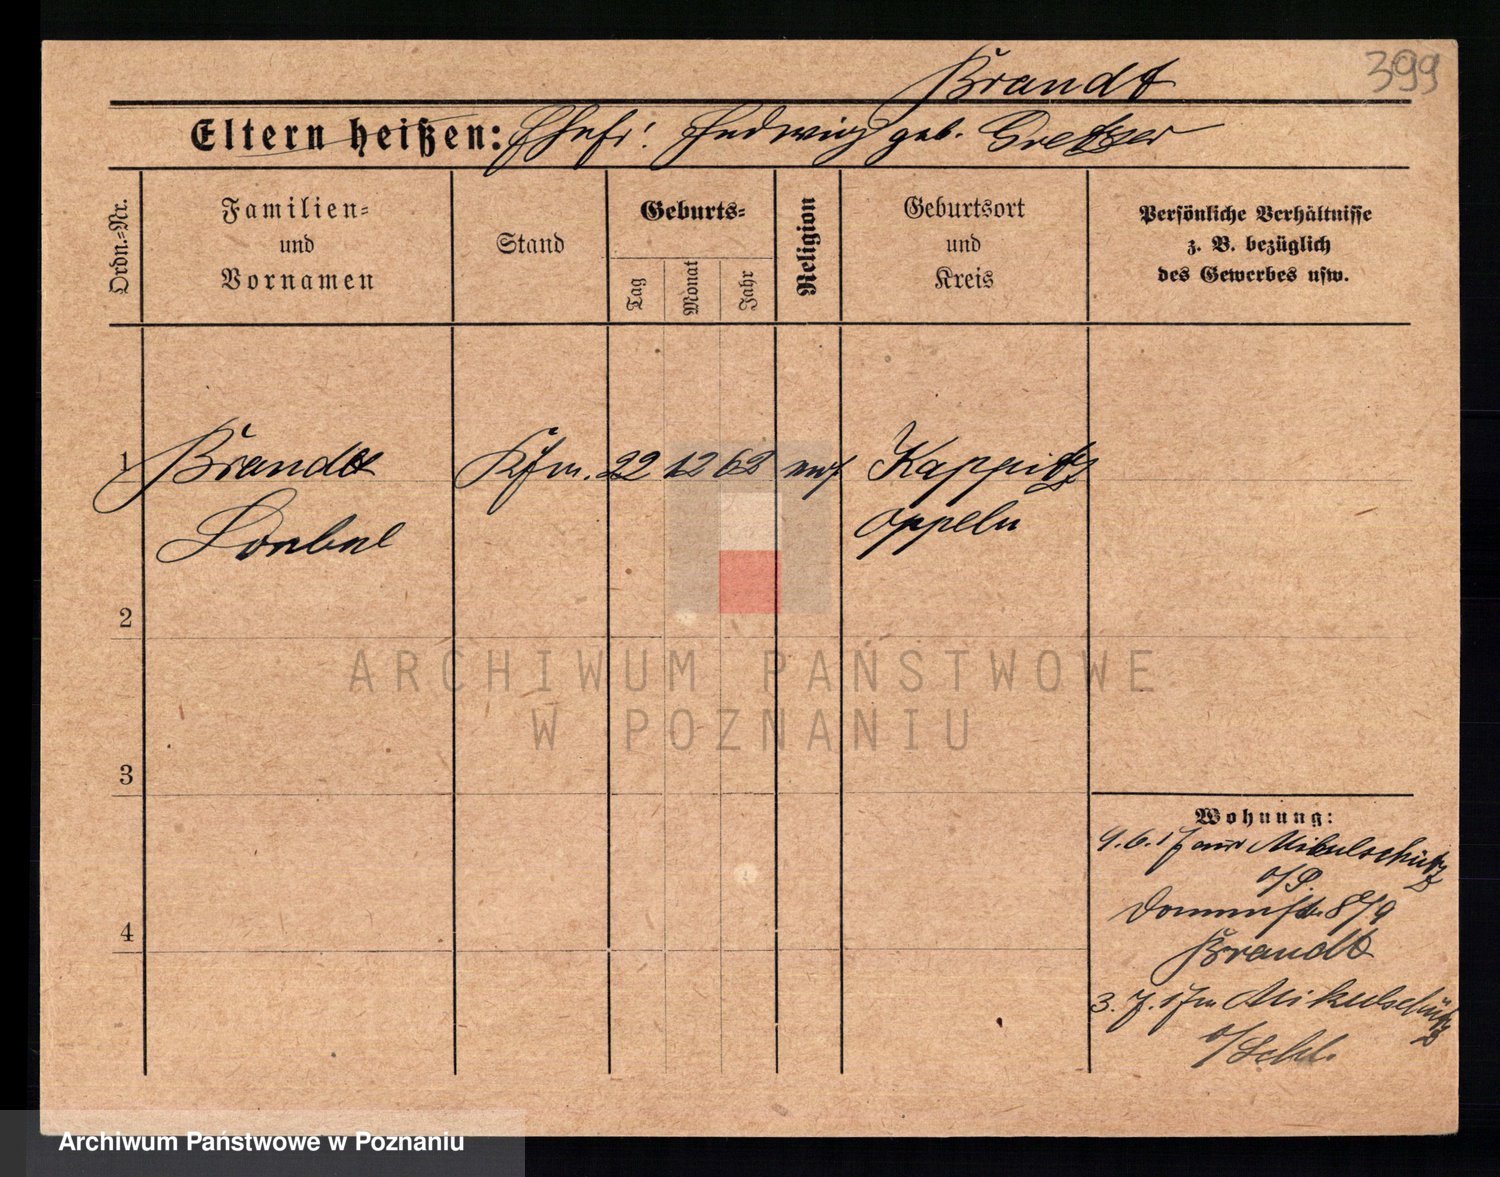 Brandt
399
Eltern heißen: Ehefr: Hedwig geb. Gretzer
Ordn.-Nr.
Familien-
und
Vornamen
Stand
Geburts-
Tag
Monat
Jahr
Religion
Geburtsort
und
Kreis
Persönliche Verhältnisse
z. B. bezüglich
des Gewerbes usw.
1 Brandt Kfm. 22 12 62 mos. Kappitz
Loebel Oppeln
2
3
4
Wohnung:
9.6.17 aus Mikulschütz
o/S.
Dominstr. 8/9
Brandt
3.7.17 n Mikulschütz
o/Schl.
ARCHIWUM PAŃSTWOWE
W POZNANIU
Archiwum Państwowe w Poznaniu